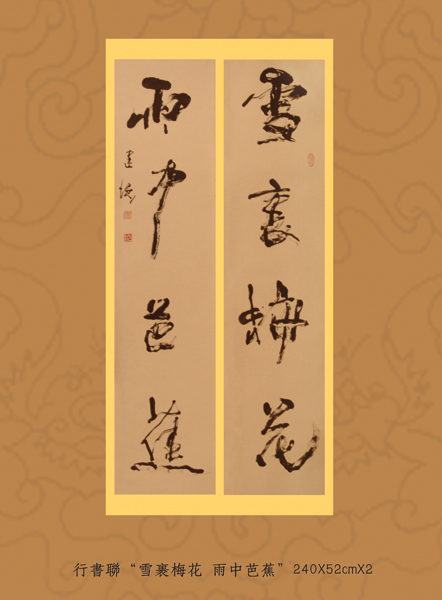 雪裏梅花
雨中芭蕉
建德
行書聯“雪裏梅花 雨中芭蕉”240X52cmX2